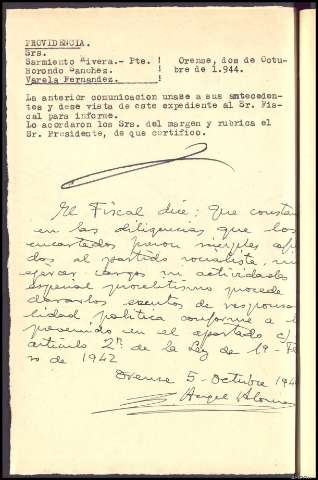 PROVIDENCIA.
Srs.
Sarmiento Rivera.- Pte. !
Horondo Sanchez. !
Varela Fernandez. !
Orense, dos de Octu-
bre de 1.944.
La anterior comunicacion unase a sus anteceden-
tes y dese vista de este expediente al Sr. Fis-
cal para informe.
Lo acordaron los Srs. del margen y rubrica el
Sr. Presidente, de que certifico.
El Fiscal dice; que constan
en las diligencias que los
encartados fueron simples afi
dos al partido socialista, sin
ejercer cargos ni actividades
especial proselitismo procede
declararlos exentos de responsa
bilidad politica conforme a l
prevenido en el apartado c/
artículo 2º de la Ley de 19- Fe
ro de 1942
Orense 5 - Octubre 194
Angel Alonso